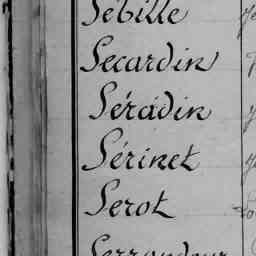 Sébille
Secardin
Séradin
Sérinet
Serot